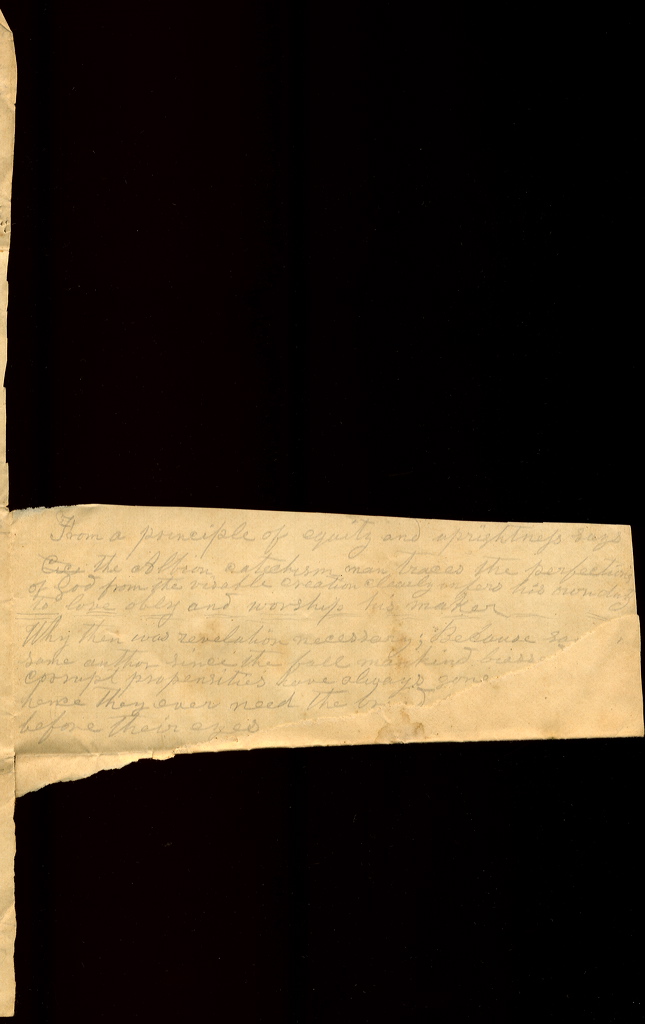 From a principle of equity and uprightness says
the Albion catechysm man traces the perfections
of God from the visable creation clearly infers his own duty
to love obey and worship his maker
Why then was revelation necessary; Because
same author since the fall mankind
corrupt propensities have always gone
hence they ever need the
before their eyes